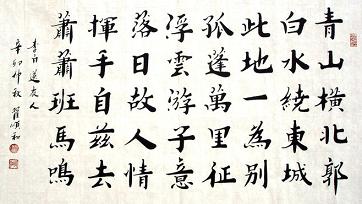 青山橫北郭
白水繞東城
此地一為別
孤蓬萬里征
浮雲游子意
落日故人情
揮手自兹去
蕭蕭班馬鳴
李白送友人
辛卯仲秋 翟順和